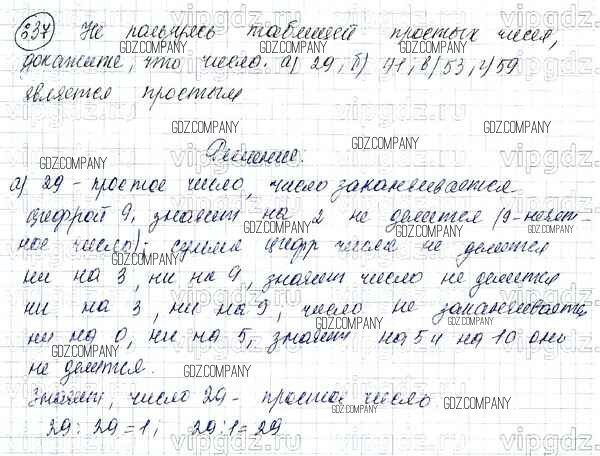 537 Не пользуясь таблицей простых чисел,
докажите, что числа: а) 29; б) 41; в) 53, г) 59
является простым
Решение:
а) 29 - простое число, число заканчивается
цифрой 9, значит на 2 не делится (9-нечёт-
ное число); сумма цифр числа не делится
ни на 3, ни на 9, значит число не делится
ни на 3, ни на 9, число не заканчивается
ни на 0, ни на 5, значит на 5 и на 10 оно
не делится.
Значит, число 29 - простое число
29 : 29 = 1; 29:1 = 29